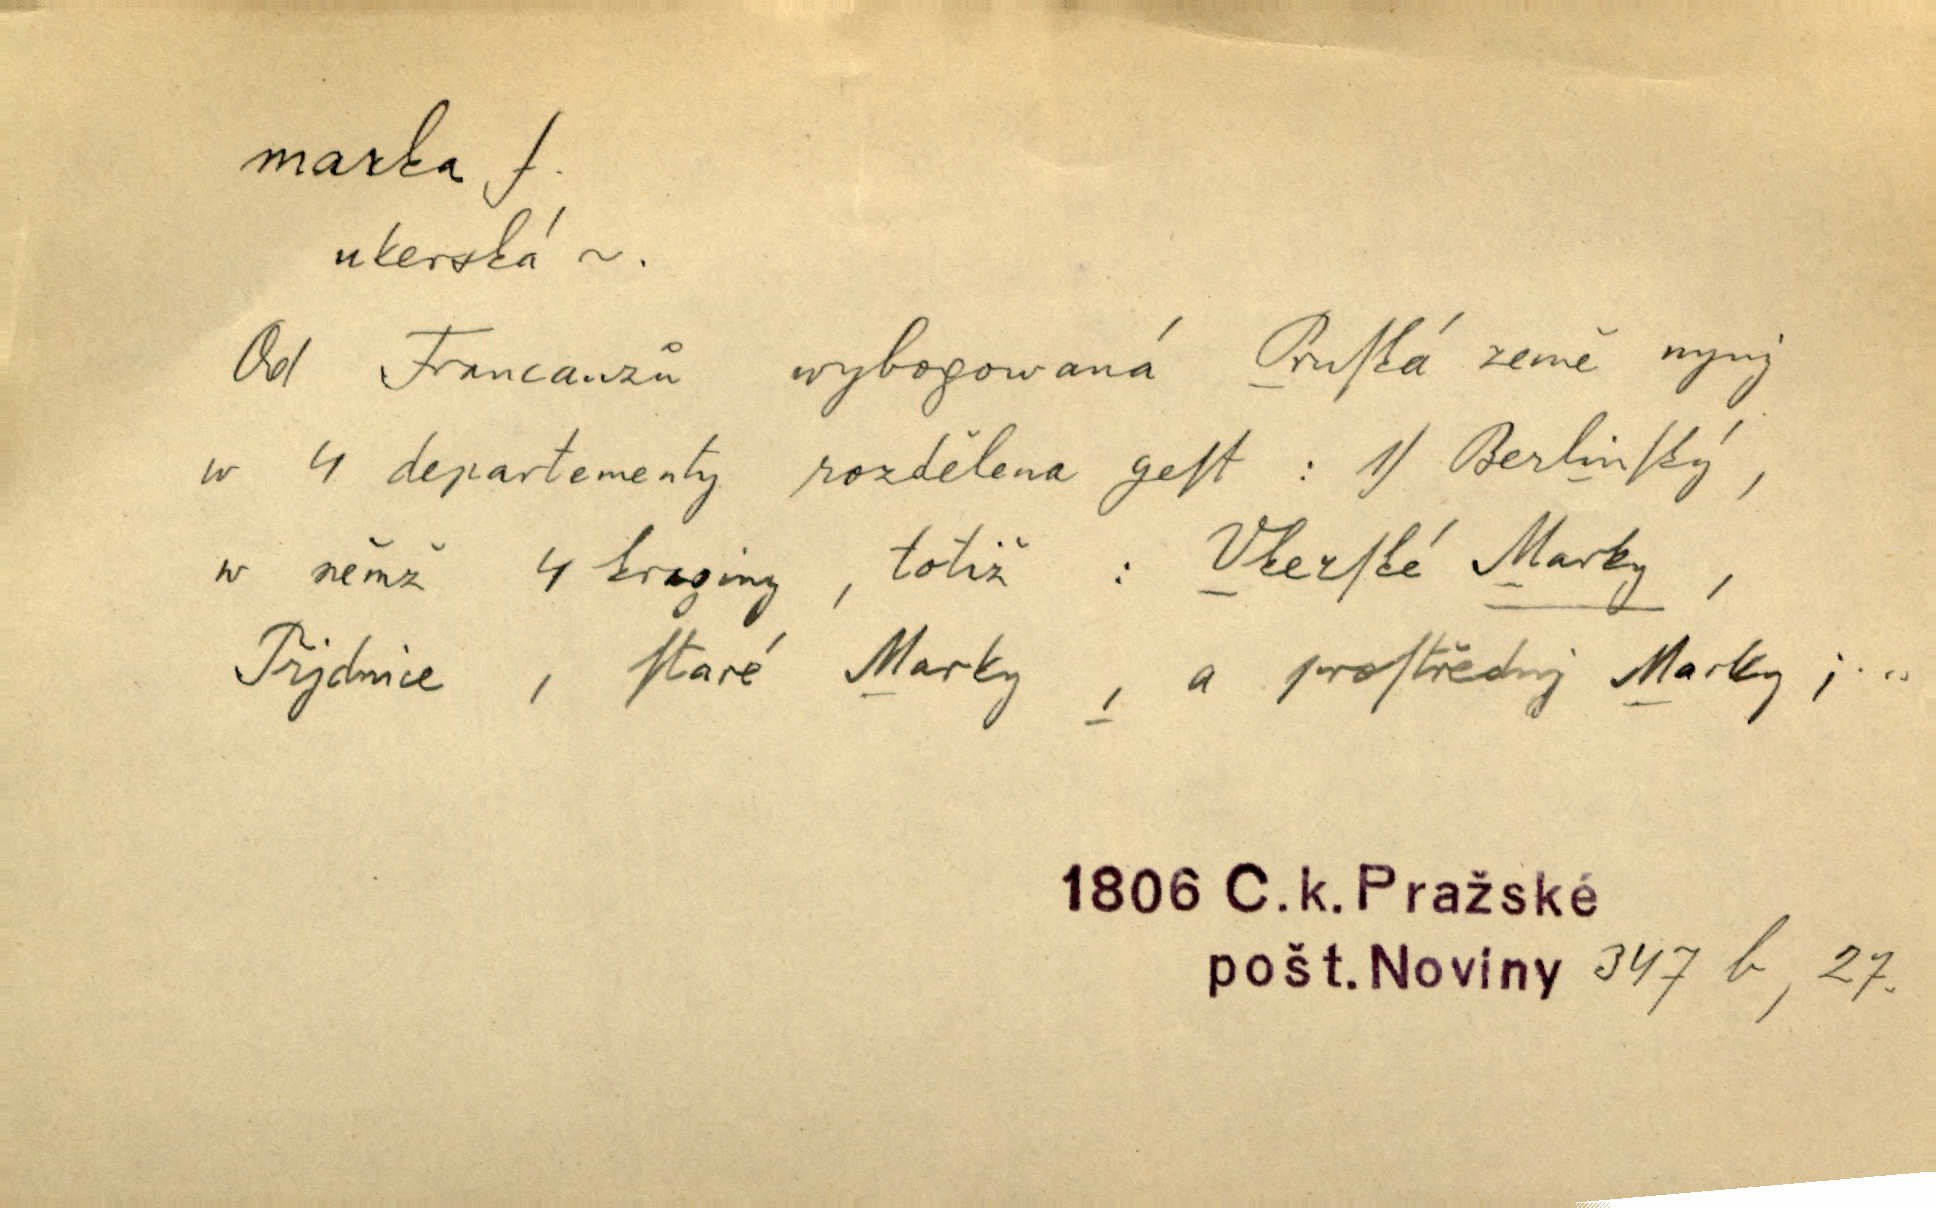 marka f.
ukerská ~.
Od Francauzů wybogowaná Pruſká země nynj
w 4 departementy rozdělena geſt : 1) Berlinſký,
w němž 4 kraginy, totiž : Vkerſké Marky,
Přjdnice, ſtaré Marky, a proſtřednj Marky; ...
1806 C.k. Pražské
pošt. Noviny 347 b, 27.